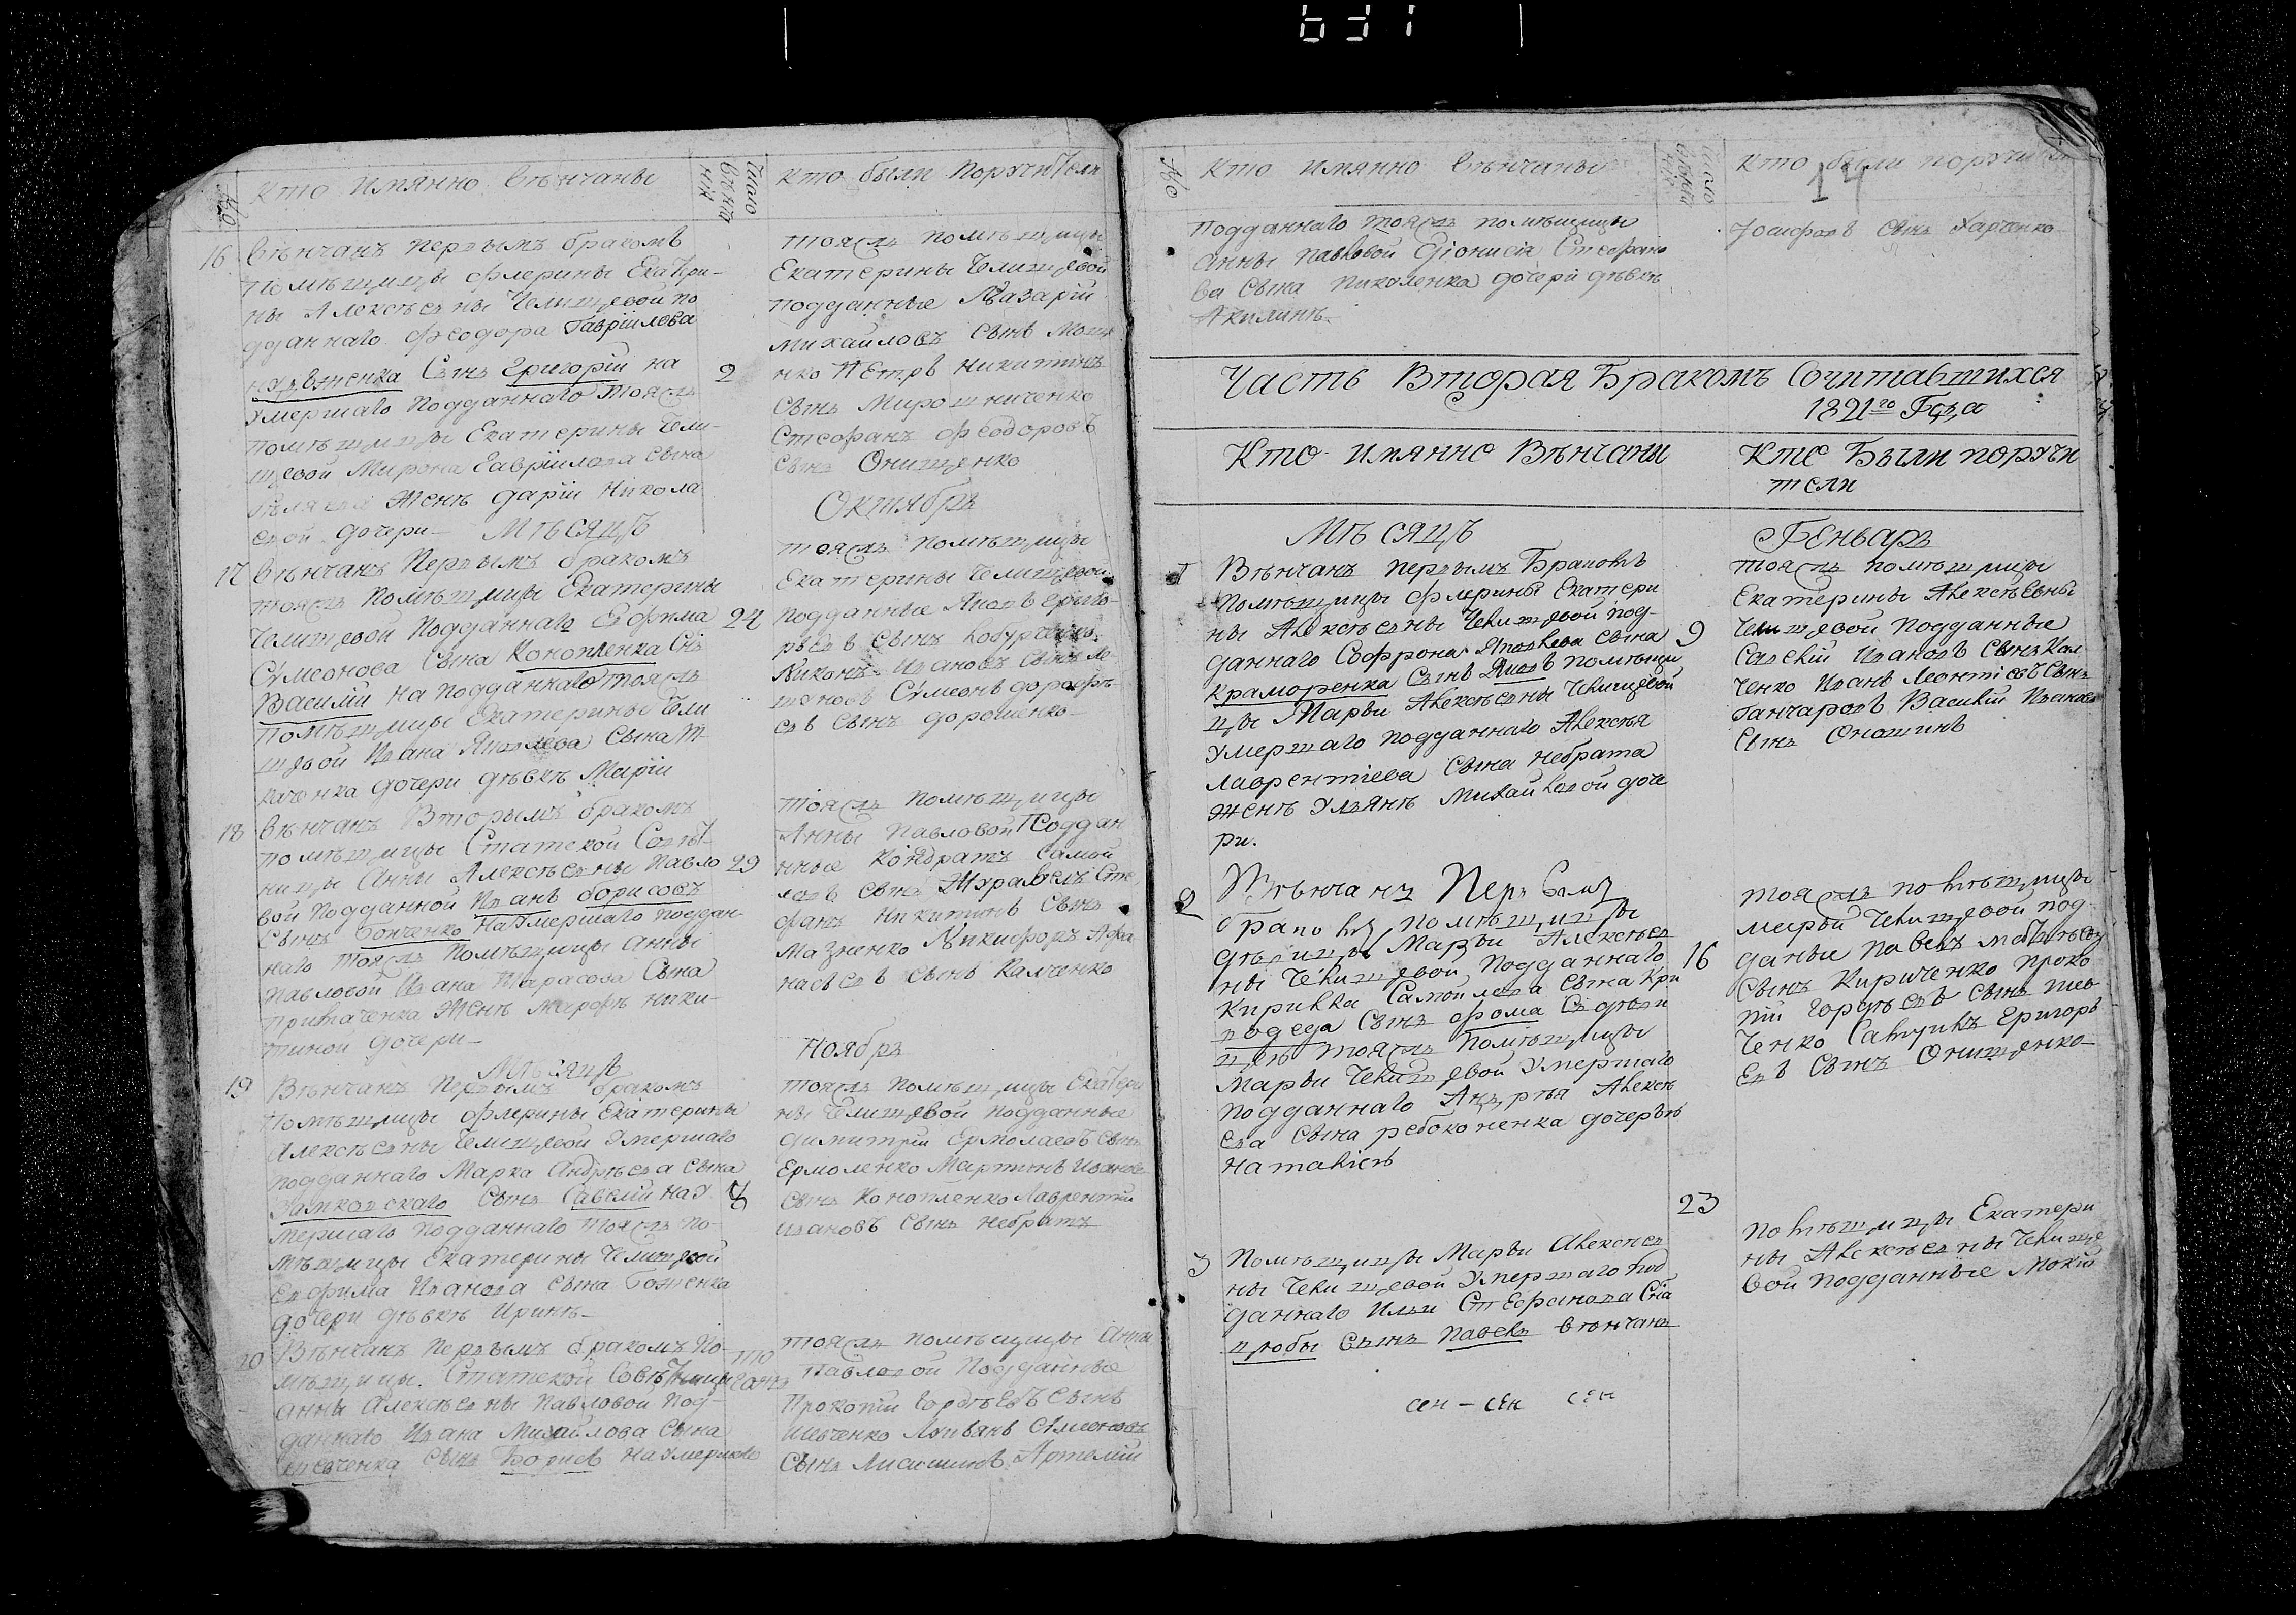 631
№
Кто имянно вѣнчаны
Число вѣнчания
Кто были поручители
16
Вѣнчанъ первымъ бракомъ
помѣщицы Флерины Екатери-
ны Алексѣевны Челищевой по
дданнаго Феодора Гавріилова
сынъ Григорій на
умершаго подданнаго тояжъ
помѣщицы Екатерины Чели-
щевой Мирона Гавріилова сына
женѣ Даріи Никола
евой дочери
2
тояжъ помѣщицы
Екатерины Челищевой
подданные Лазарій
Михайловъ сынъ
Петръ Никитинъ
сынъ Мирошниченко
Стефанъ Феодоровъ
сынъ Онищенко
Мѣсяцъ
Октябрь
17
Вѣнчанъ первымъ бракомъ
тояжъ помѣщицы Екатерины
Челищевой подданнаго Ефима
Сѵмеонова сына Конопленка сынъ
Василій на подданнаго тояжъ
помѣщицы Екатерины Чели
щевой Ивана Яковлева сына Т-
каченка дочери дѣвкѣ Маріи
24
тояжъ помѣщицы
Екатерины Челищевой
подданные Яковъ Григо-
рьевъ сынъ
Никонъ Ивановъ сынъ
Сѵмеонъ Дорофѣ-
евъ сынъ Дорошенко
18
Вѣнчанъ вторымъ бракомъ
помѣщицы Статской Совѣт-
ницы Анны Алексѣевны Павло
вой подданной Иванъ Борисовъ
сынъ Бонченко на умершаго поддан-
наго тояжъ помѣщицы Анны
Павловой Ивана Тарасова сына
Притаченка женѣ Марфѣ Ники-
тиной дочери
29
тояжъ помѣщицы
Анны Павловой поддан
нные Кондратъ Самой
ловъ сынъ Журавель Сте
фанъ Никитинъ сынъ
Мазненко Никифоръ Афа
насьевъ сынъ Калченко
Мѣсяцъ
Ноябрь
19
Вѣнчанъ первымъ бракомъ
помѣщицы Флерины Екатерины
Алексѣевны Челищевой умершаго
подданнаго Марка Андрѣева сына
сынъ Савелій на у-
мершаго подданнаго тояжъ по-
мѣщицы Екатерины Челищевой
Евфима Иванова сына Боженка
дочери дѣвкѣ Иринѣ
8
тояжъ помѣщицы Екатери
ны Челищевой подданные
Димитрій Ермолаевъ сынъ
Ермоленко Мартинъ Ивановъ
сынъ Конопленко Лаврентій
Ивановъ сынъ Небратъ
20
Вѣнчанъ первымъ бракомъ по-
мѣщицы Статской Совѣтницы
Анны Алексѣевны Павловой под-
даннаго Ивана Михайлова сына
Шевченка сынъ Борисъ на умершаго
тояжъ помѣщицы Анны
Павловой подданные
Прокопій Гордѣевъ сынъ
Шевченко Сѵмеоновъ
сынъ Артемій
№
Кто имянно вѣнчаны
Кто были поручители
14
подданнаго тояжъ помѣщицы
Анны Павловой Діонисія Стефано
ва сына Николенка дочери дѣвкѣ
Акилинѣ
Іосифовъ сынъ Харченко
Часть Вторая Бракомъ Сочитавшихся
1821го Года
Кто имянно Вѣнчаны
Кто Были поручи
тели
Мѣсяцъ
Геньварь
1
Вѣнчанъ первымъ Бракомъ
помѣщицы Флерины Екатери
ны Алексѣевны Челищевой под-
даннаго Софрона Яковлева сына
Краморенка сынъ Яковъ помѣщи
цы Марьи Алексѣевны Челищевой
умершаго подданнаго Алексѣя
Лаврентіева сына Небрата
женѣ Ульянѣ Михайловой доче
ри.
9
тояжъ помѣщицы
Екатерины Алексѣевны
Челищевой подданные
Савелій Ивановъ сынъ Кал
ченко Иванъ Леонтіевъ сынъ
Ганчаровъ Василій Ивановъ
сынъ Оношинъ
2
Вѣнчанъ Первымъ
бракомъ помѣщицы
дѣвицы Марьи Алексѣев
ны Челищевой подданнаго
Кирилка Самойлова сына Кри
водеда сынъ Фома съ дѣви
цею тояжъ помѣщицы
Марьи Челищевой умершаго
подданнаго Андрѣя Алексѣ
ева сына Ребоконенка дочерью
Наталіею
16
тояжъ помѣщицы
Марьи Челищевой под
даные Павелъ Матвѣевъ
сынъ Кириченко Проко
пій Гордѣевъ сынъ Шев
ченко Самуилъ Григорь
евъ сынъ Онищенко
23
3
Помѣщицы Марьи Алексѣев
ны Челищевой умершаго под
даннаго Ильи Стефанова сына
Цюбы сынъ Павелъ вѣнчанъ
помѣщицы Екатери
ны Алексѣевны Челище
вой подданные Мокій
сен – сен сен